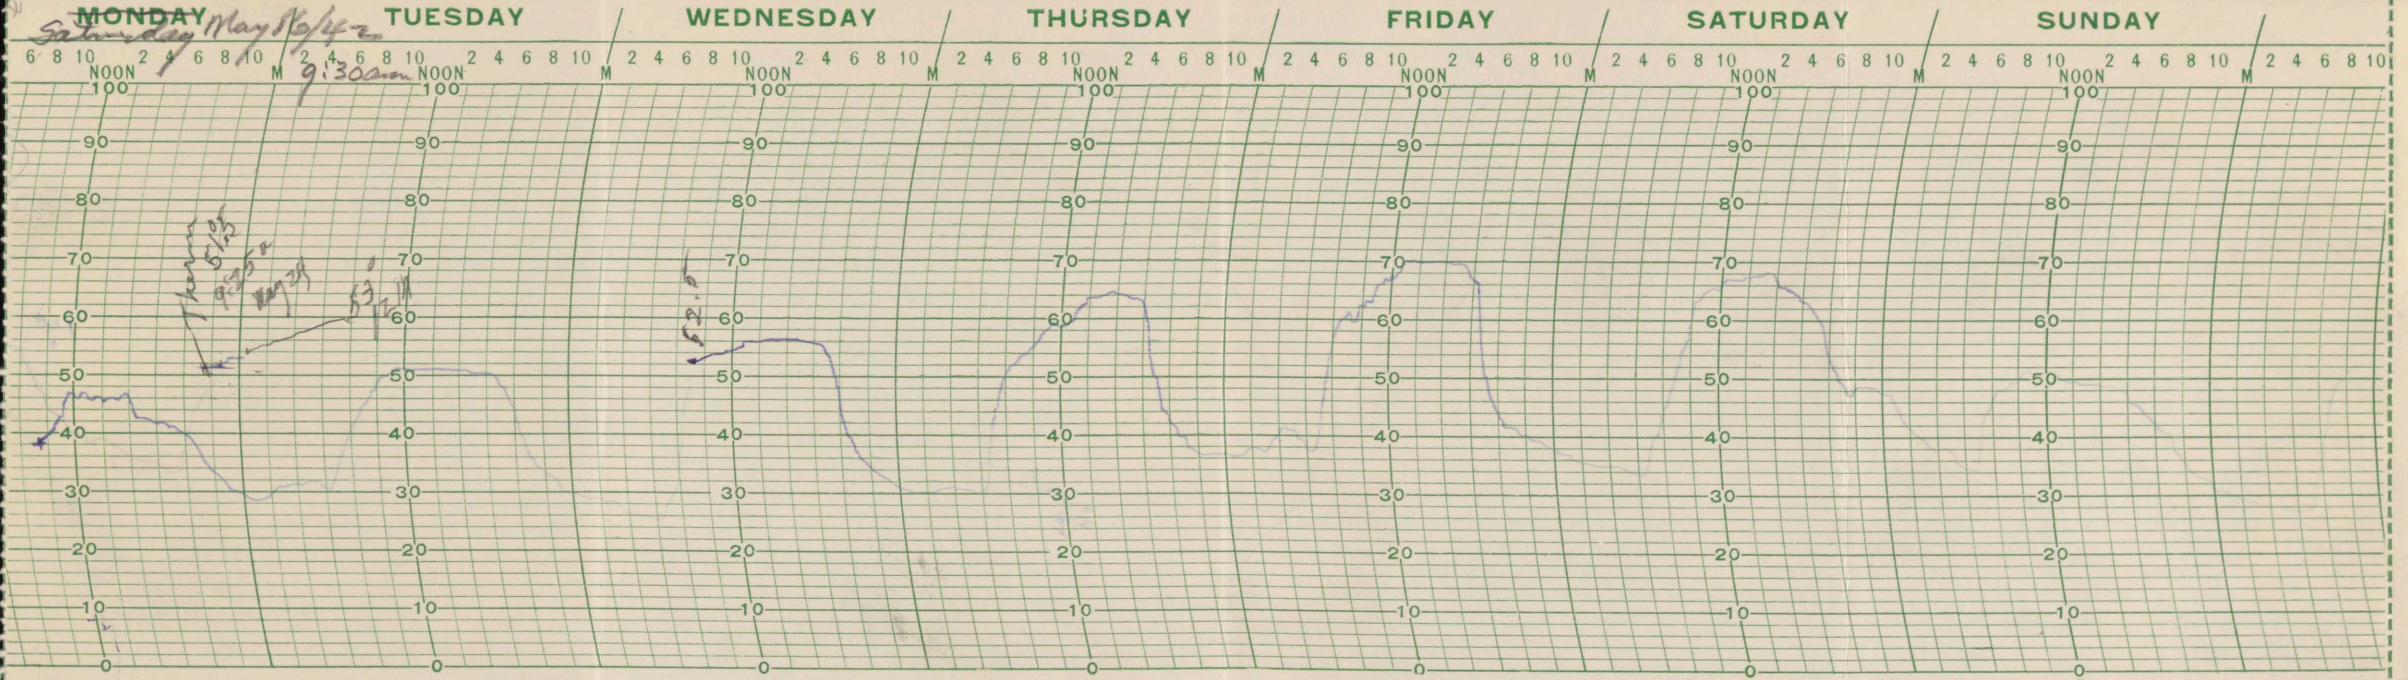 MONDAY TUESDAY WEDNESDAY THURSDAY FRIDAY SATURDAY SUNDAY
Saturday May 16/42
6 8 10 NOON 2 4 6 8 10 M 2 4 6 8 10 NOON 2 4 6 8 10 M 2 4 6 8 10 NOON 2 4 6 8 10 M 2 4 6 8 10 NOON 2 4 6 8 10 M 2 4 6 8 10 NOON 2 4 6 8 10 M 2 4 6 8 10 NOON 2 4 6 8 10 M 2 4 6 8 10 NOON 2 4 6 8 10 M 2 4 6 8 10
9:30am
100 100 100 100 100 100 100
90 90 90 90 90 90 90
80 80 80 80 80 80 80
Therm
May 24
70 70 70 70 70 70 70
53
52.5
60 60 60 60 60 60 60
50 50 50 50 50 50 50
40 40 40 40 40 40 40
30 30 30 30 30 30 30
20 20 20 20 20 20 20
10 10 10 10 10 10 10
0 0 0 0 0 0 0